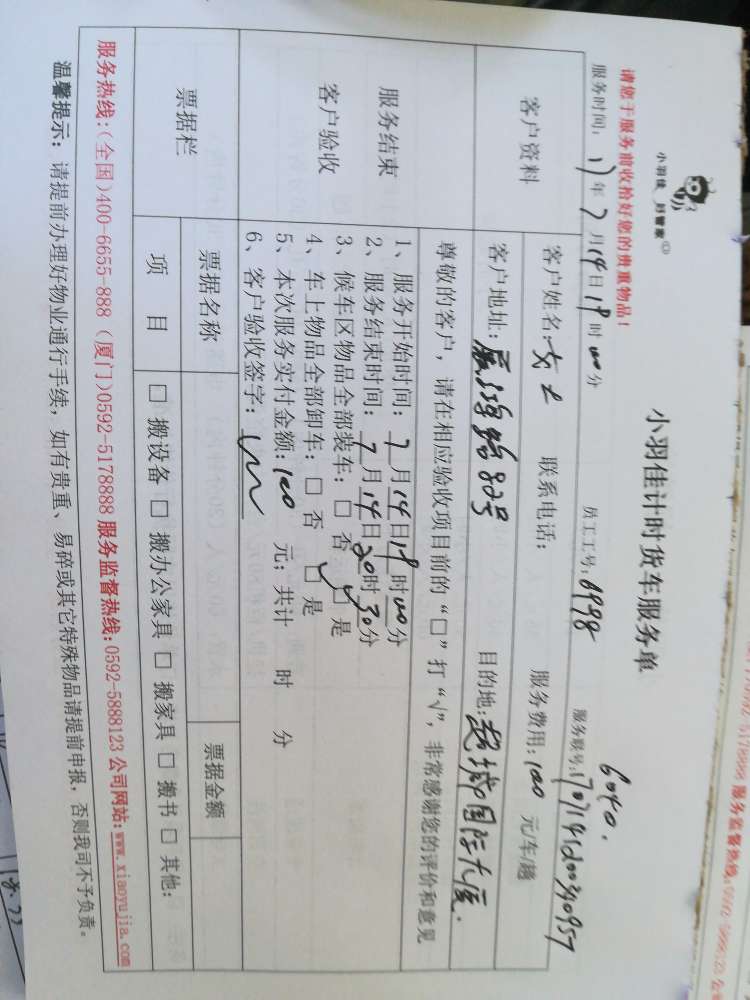 小羽佳 好管家
小羽佳计时货车服务单
6040.
请您于服务前收拾好您的贵重物品！
服务时间：17年7月14日19时00分 员工工号：8998 服务联号：
客户资料
客户姓名：女士 联系电话： 服务费用：100 元/车/趟
客户地址：82号 目的地：国际大厦.
服务结束
客户验收
尊敬的客户，请在相应验收项目前的“□”打“√”，非常感谢您的评价和意见
1、服务开始时间：7月14日19时00分
2、服务结束时间：7月14日20时30分
3、候车区物品全部装车：□ 否 □ 是
4、车上物品全部卸车：□ 否 □ 是
5、本次服务实付金额：100 元；共计 时 分
6、客户验收签字：
票据栏
票据名称 票据金额
项 目 □ 搬设备 □ 搬办公家具 □ 搬家具 □ 搬书 □ 其他：
服务热线：(全国)400-6655-888 (厦门)0592-5178888 服务监督热线：0592-5888123 公司网站：www.xiaoyujia.com
温馨提示：请提前办理好物业通行手续，如有贵重、易碎或其它特殊物品请提前申报，否则我司不予负责。